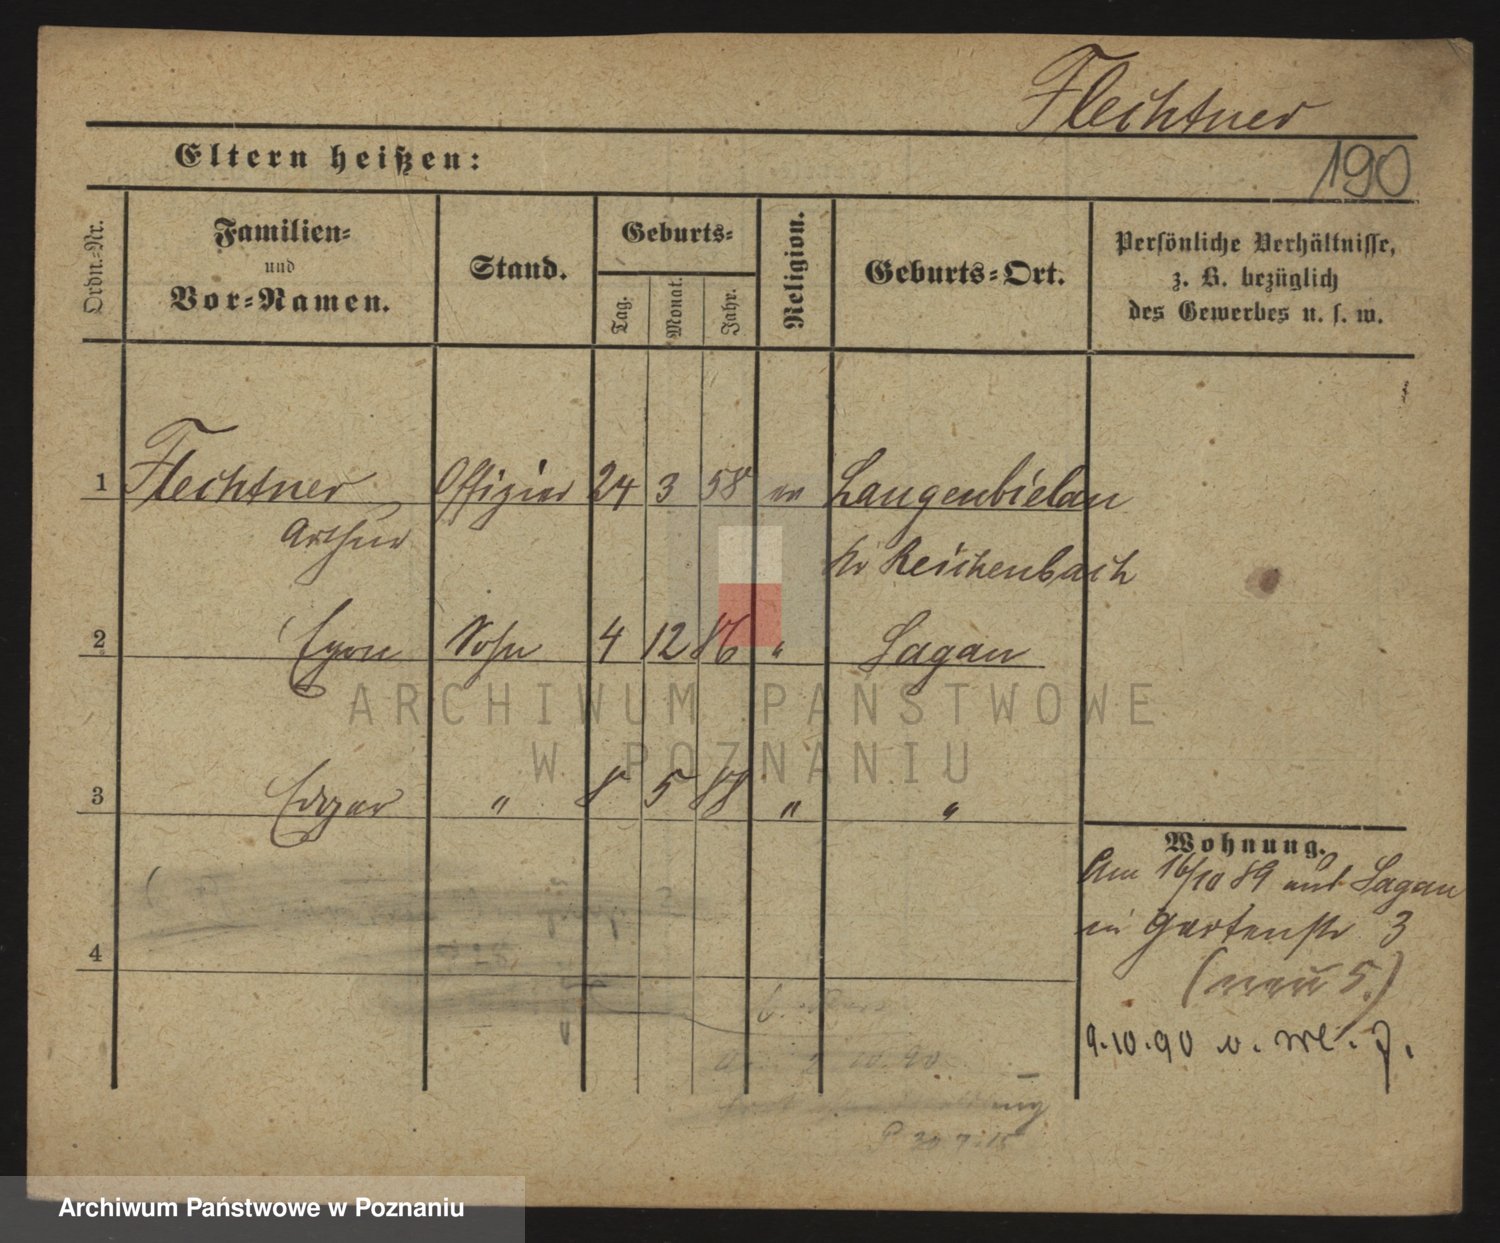 Flechtner
Eltern heißen:
190
Ordn.-Nr.
Familien-
und
Vor-Namen.
Stand.
Geburts-
Tag.
Monat.
Jahr.
Religion.
Geburts-Ort.
Persönliche Verhältnisse,
z. B. bezüglich
des Gewerbes u. s. w.
1 Flechtner Offizier 24 3 58 ev Langenbielau
Arthur
Kr Reichenbach
2 Egon Sohn 4 12 86 " Sagan
ARCHIWUM PAŃSTWOWE
W POZNANIU
3 Edgar " 8 5 88 " "
Wohnung.
Am 16/10 89 aus Sagan
in Gartenstr 3
(neu 5.)
4
9.10.90 v.
10.90
20.7.15
Archiwum Państwowe w Poznaniu